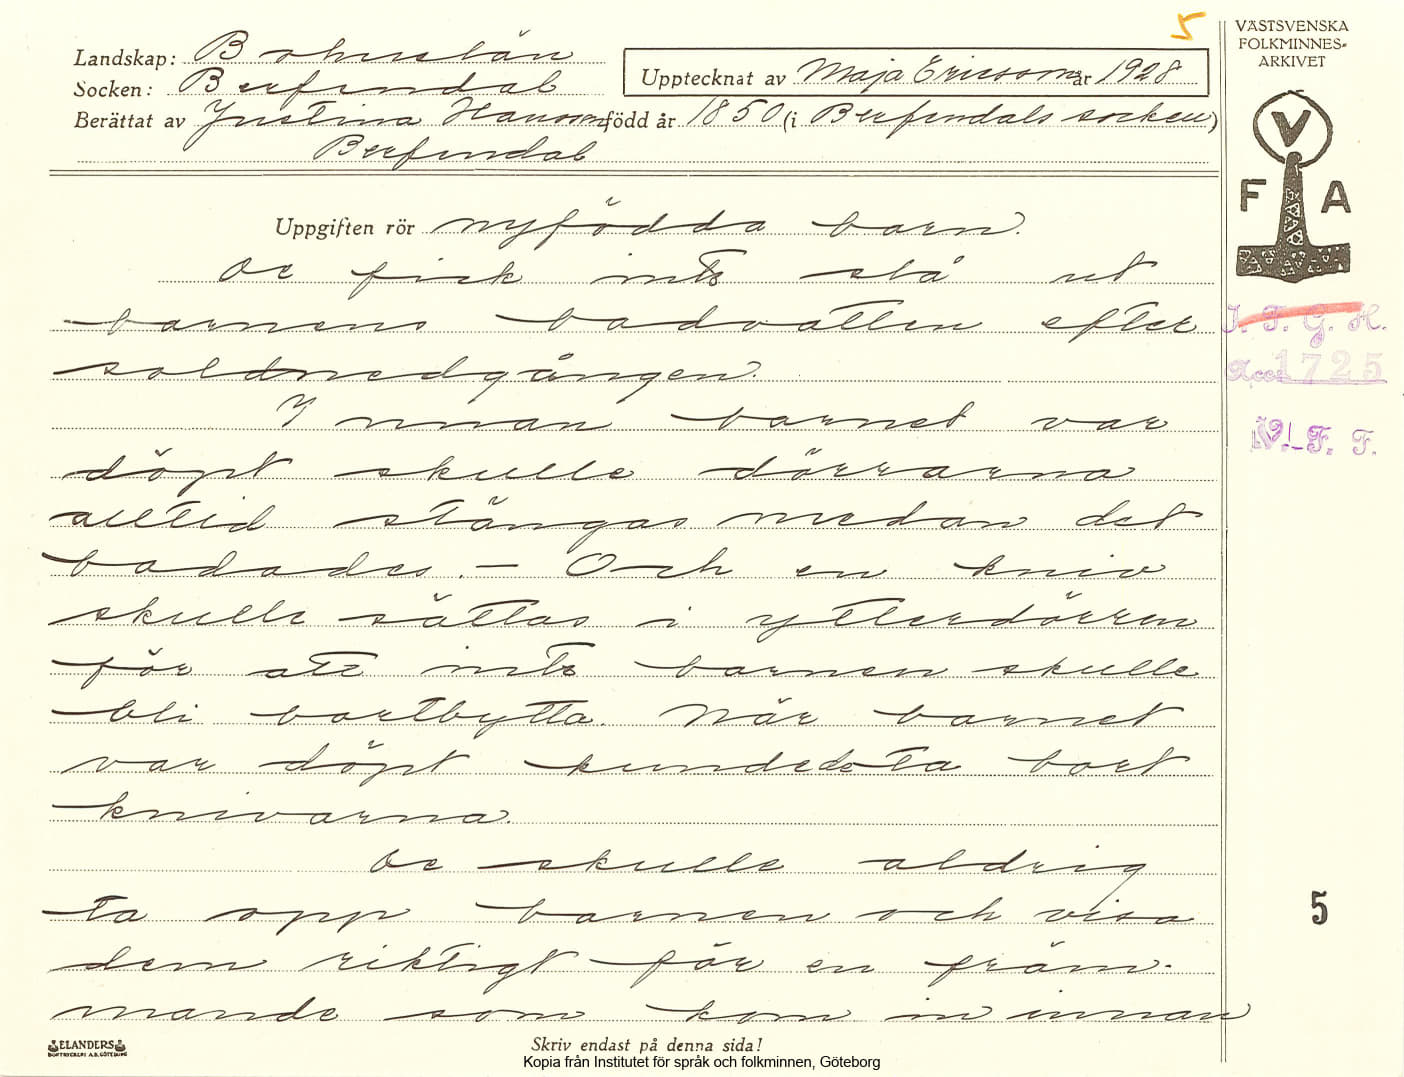 5
VÄSTSVENSKA
FOLKMINNES-
ARKIVET
Landskap: Bohuslän
Socken: Berfendal
Upptecknat av Maja Ericsson år 1928
Berättat av Justina Hansson född år 1850 (i Berfendals socken)
Berfendal
V
F A
Uppgiften rör nyfödda barn.
De fick inte slå ut
barnens badvatten efter
solnedgången.
I. F. G. H.
Acc. 1725
V. F. F.
Innan barnet var
döpt skulle dörrarna
alltid stängas medan det
badades. — Och en kniv
skulle sättas i ytterdörren
för att inte barnen skulle
bli bortbytta. När barnet
var döpt kunde de ta bort
knivarna.
De skulle aldrig
ta opp barnen och visa
5
dem riktigt för en främ-
mande som kom in innan
ELANDERS
BOKTRYCKERI A.B. GÖTEBORG
Skriv endast på denna sida!
Kopia från Institutet för språk och folkminnen, Göteborg